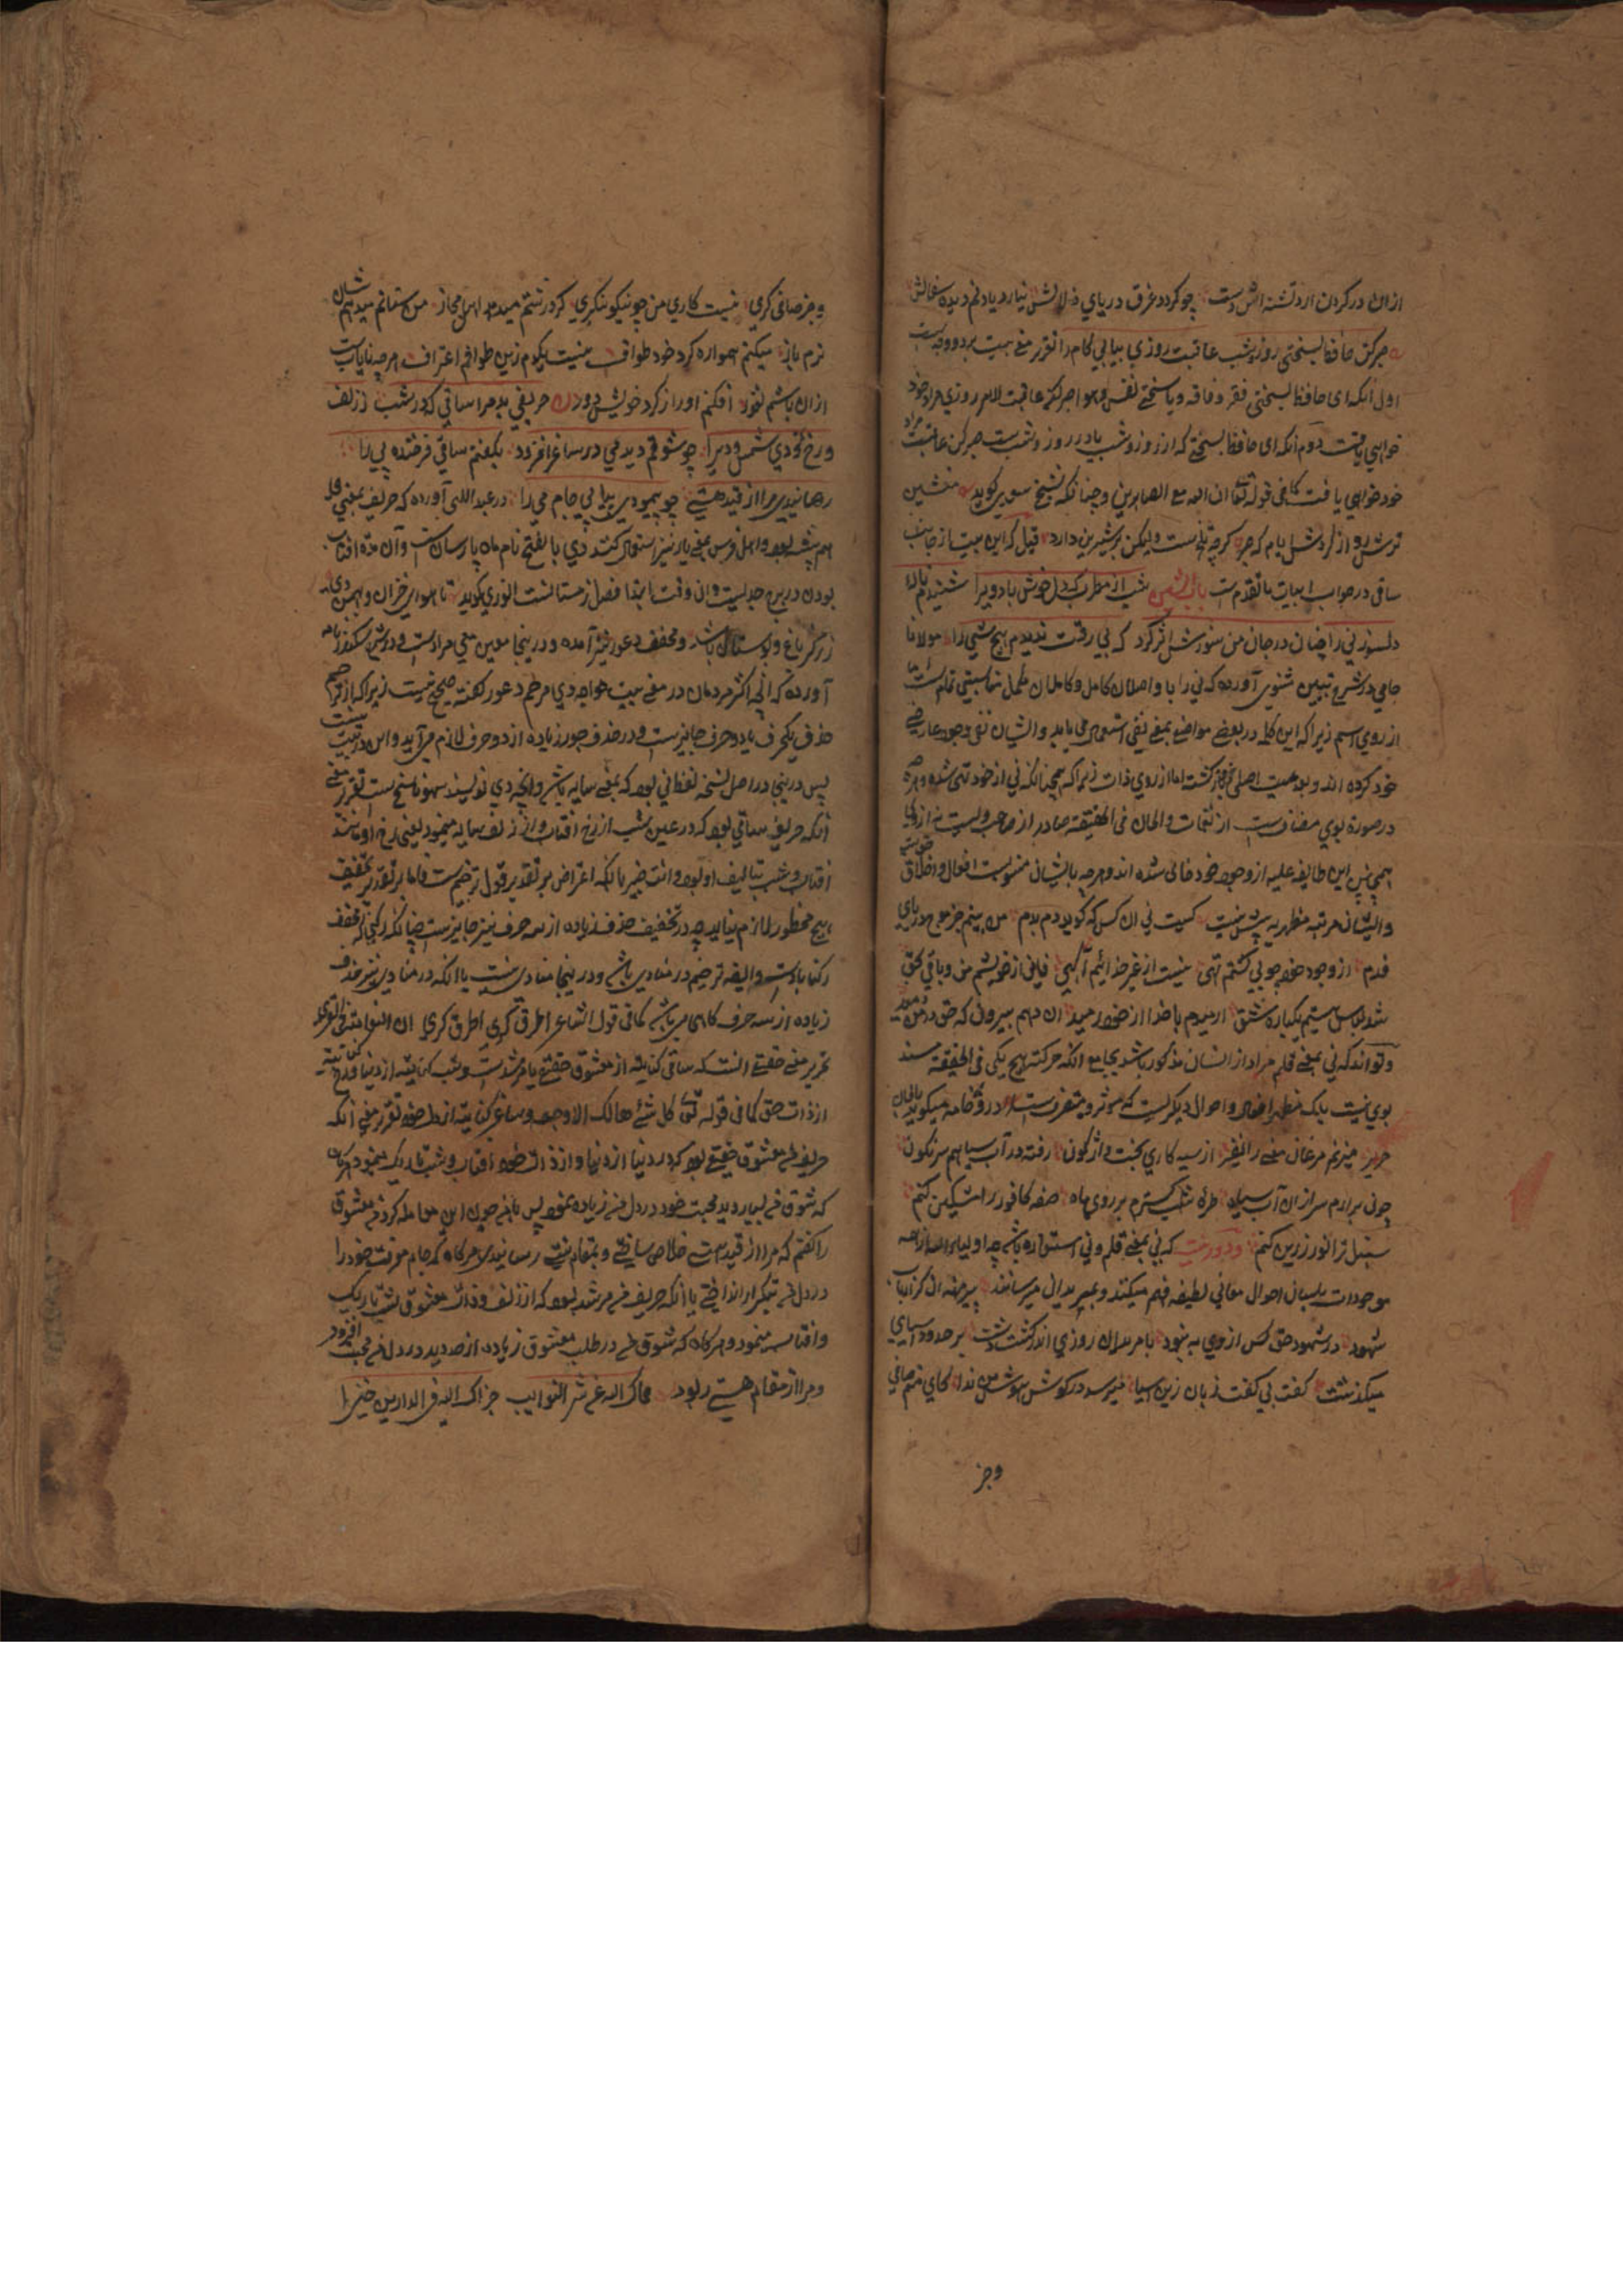 ازان در گردن ارد تشنه اش دست چو کردد غرق دریای زلالش نیارد یاد نم دیده سفالش
صبر کن حافظ بسختی روز و شب عاقبت روزی بیابی کام را تقریر معنی بیت بر دو وجه است
اول آنکه ای حافظ بسختی فقر و فاقه و یا سختی نفس و هوا صبر کن عاقبت الامر روزی مراد خود
خواهی یافت دوم آنکه ای حافظ بسختی که از روز و شب یا در روز و شب ست صبر کن عاقبت مراد
خود خواهی یافت کما فی قوله تعالی ان الله مع الصابرین و چنانکه شیخ سعدی کوید منشین
ترش رو از کردش ایام که صبر کرچه تلخ ست ولیکن بر شیرین دارد قیل که این بیت از جانب
ساقی در جواب ابیات ما تقدم ست شب از مطرب که دل خوش باد ویرا شنیدم نالهٔ
دلسوز نی را چنان در جان من سوزش اثر کرد که بی رقت ندیدم هیچ شی را مولانا
جامی در شرح تبیین مثنوی آورده که نی را با واصلان کامل و کاملان مکمل مناسبتی تمام است
از روی اسم زیرا که این کلمه در بعضی مواضع بمعنی نفی استعمال می یابد و ایشان نفی وجود عارضی
خود کرده اند و بعدمیت اصلی خود باز کشته اما از روی ذات زیرا که همچنانکه نی از خود تهی شده و هرچه
در صورة بوی مضاف ست از نغمات و الحان فی الحقیقة صادر از صاحب ویست نه از وی
همچنین این طایفه علیه از وجود خود خالی شده اند و هرچه بایشان منسوبست افعال و اخلاق
و ایشان مرتبه مظهریه بیش نیست کیست نی آن کس که کوید دم بدم من نیم جز موج دریای
قدم از وجود خود چو نی کشتم تهی نیست از غیر خدایم آکهی فانی از خویشم من و باقی بحق
شد لباس هستیم یکباره شق آرمیدم با خدا از خود رمید آن دهم بیرون که حق در من دمید
و تواند که نی بمعنی قلم مراد از انسان مذکور باشد بجامع آنکه حرکت هیچ یکی فی الحقیقة مسند
بوی نیست بلکه مظهر افعال و احوال دیکریست که موثر و متصرف ست در وی خامه میکوید بالحان
صریر میزنم مرغان معنی را نفیر از سیه کاری بخت واژکون رفته در آب سیاهم سرنکون
چون برارم سر ازان آب سیاه طرهٔ شب کسترم بر روی ماه صفحه کافور را مشکین کنم
سنبل تر از نور زرین کنم که نی بمعنی قلم ونی استعاره باشد چه اولیاء الله از همه
موجودات بلسان احوال معانی لطیفه فهم میکنند و بمریدان میرسانند پیر مهنه آن کز ارباب
شهود در شهود حق کس از وی به نبود با مریدان روزی اندر کشت دشت بر حدود آسیای
میکذشت کفت بی کفت زبان زین آسیا میرسد در کوش هوش من ندا کای منم صافی
وجز
وجز صافی کری نیست کاری من چو نیکو بنکری کرد درشتم میدهد اهل مجاز من ستانم میدهم شان
نرم باز میکنم همواره کرد خود طواف نیست یکدم زین طوافم اعتراف هرچه نایاب است
ازان باشم نفور افکنم او را ز کرد خویش دور حریفی بد مرا ساقی که در شب ز زلف
و رخ نمودی شمس و دی را چو شوقم دید می در ساغر افزود بکفتم ساقی فرخنده پی را
رهانیدی مرا از قید هستی چو پیمودی پیاپی جام می را در عبداللهی آورده که حریف بمعنی
هم پیشه بود و اهل فرس بمعنی یار نیز استعمال کنند دی بالفتح نام ماه پارسیان ست و آن مدة آفتاب
بودن در برج جدیست و آن وقت ابتداء فصل زمستانست انوری کوید تا هوای خزان و بهمن و دی
زرکر باغ و بوستان باشد و مخفف دیجور نیز آمده و در اینجا همین معنی مراد است و در شرح سکندر نامه
آورده که آنچه اکثر مردمان در معنی بیت خواجه دی مرخم دیجور کفته صحیح نیست زیرا که از ترخیم
حذف یکحرف یا دو حرف جایز ست و در حذف جور زیاده از دو حرف لازم می آید و این درست نیست
پس در اینجا در اصل نسخه لفظ فی بود که بمعنی سایه باشد و آنچه دی نویسند سهو ناسخ ست تقریر معنی
آنکه حریف ساقی بود که در عین شب از رخ آفتاب و از زلف سایه مینمود یعنی رخ او مانند
هیچ محظور لازم نیاید چه در تخفیف حذف زیاده از سه حرف نیز جایز ست چنانکه رکنی که مخفف
رکناباد است و ایضا ترخیم در منادی باشد و در اینجا منادی نیست با آنکه در منادی نیز حذف
زیاده از سه حرف کاهی می باشد کما فی قول الشاعر اطرق کری اطرق کری ان النعامة فی القری
تحریر معنی حقیقی آنست که ساقی کنایت از معشوق حقیقی یا مرشد است و شب کنایت از دنیا و رخ کنایت
از ذات حق کما فی قوله تعالی کل شیٔ هالک الا وجهه و ساغر کنایت از تقریر معنی آنکه
که شوق من بسیار دید محبت خود در دل من زیاده نمود پس من چون این معامله کرد معشوق
را کفتم که مرا از قید هستی خلاص ساختی و بمقام نیستی رسانیدی هرکاه که جام معرفت خود را
در دل من تکرار انداختی یا آنکه حریف من مرشد بود که از زلف و ذات معشوق شب تاریک
و آفتاب مینمود و هرکاه که شوق من در طلب معشوق زیاده از حد دید در دل من محبت افزود
و مرا از مقام هستی ربود حماک الله عن شر النوایب جزاک الله فی الدارین خیرا